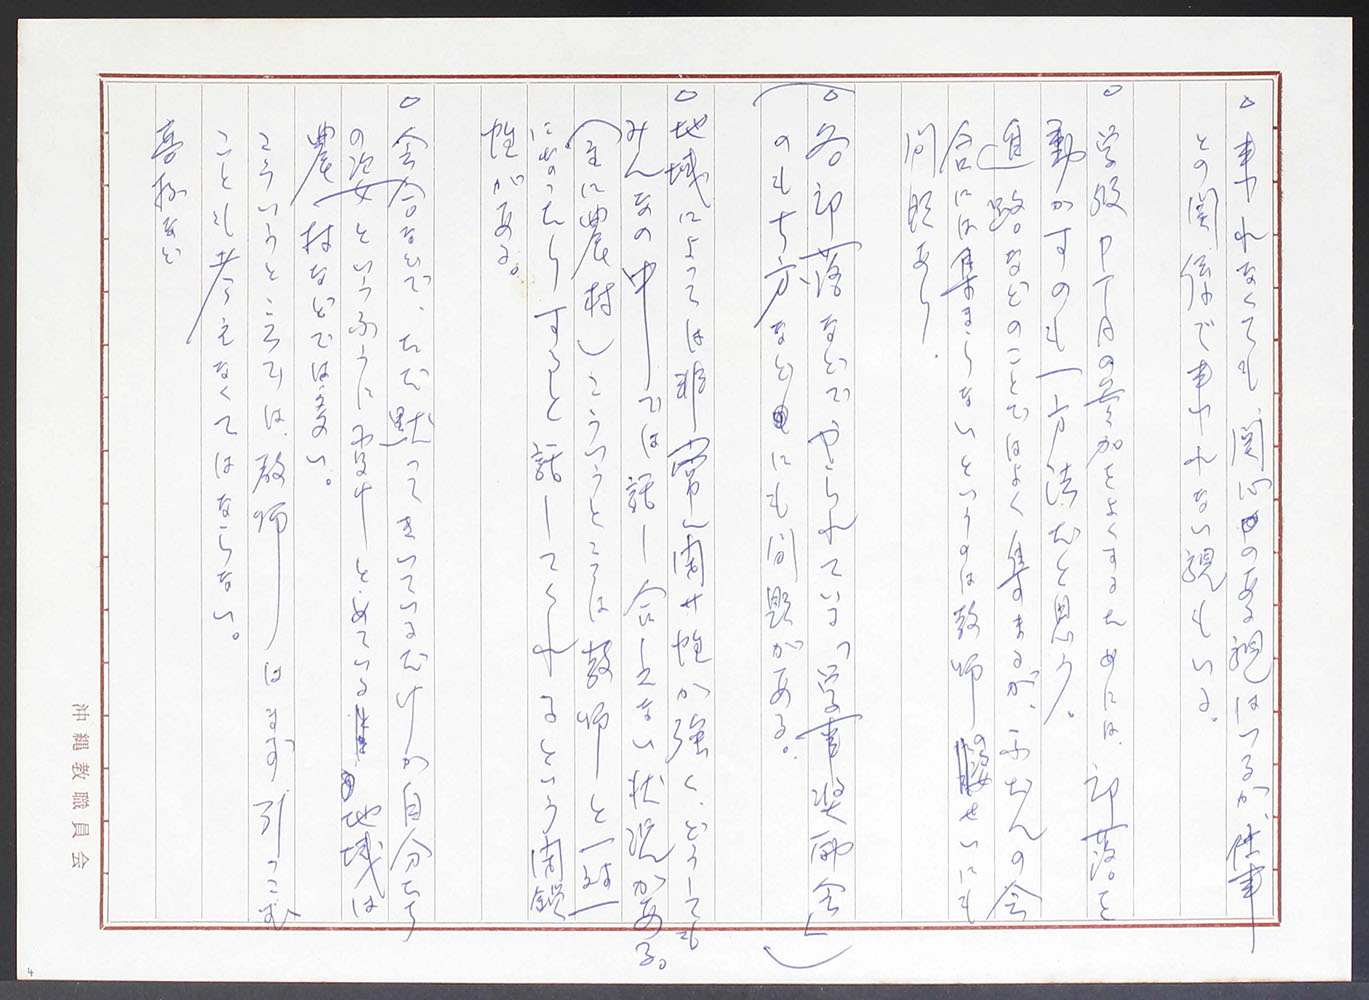 ○来れなくても、関心のある親はいるが、仕事
との関係で来れない親もいる。
○学級PTAの参加をよくするためには、部落を
動かすのも一方法だと思う。
道路などのことではよく集まるが、ふだんの会
合には集まらないというのは教師の姿せいにも
問題あり。
(○各部落などでやられている「学事奨励会」
のもち方などにも問題がある。)
○地域によっては非常に閉サ性が強く、どうしても
みんなの中では話し合えない状況がある。
(主に農村)こういうところは教師と一対一
になったりすると話してくれるという閉鎖
性がある。
○会合などで、ただ黙ってきいているだけが自分たち
の姿というふうに受けとめている地域は
農村などでは多い。
こういうところでは、教師はまず引っこむ
ことも考えなくてはならない。
高校など
沖縄教職員会
4